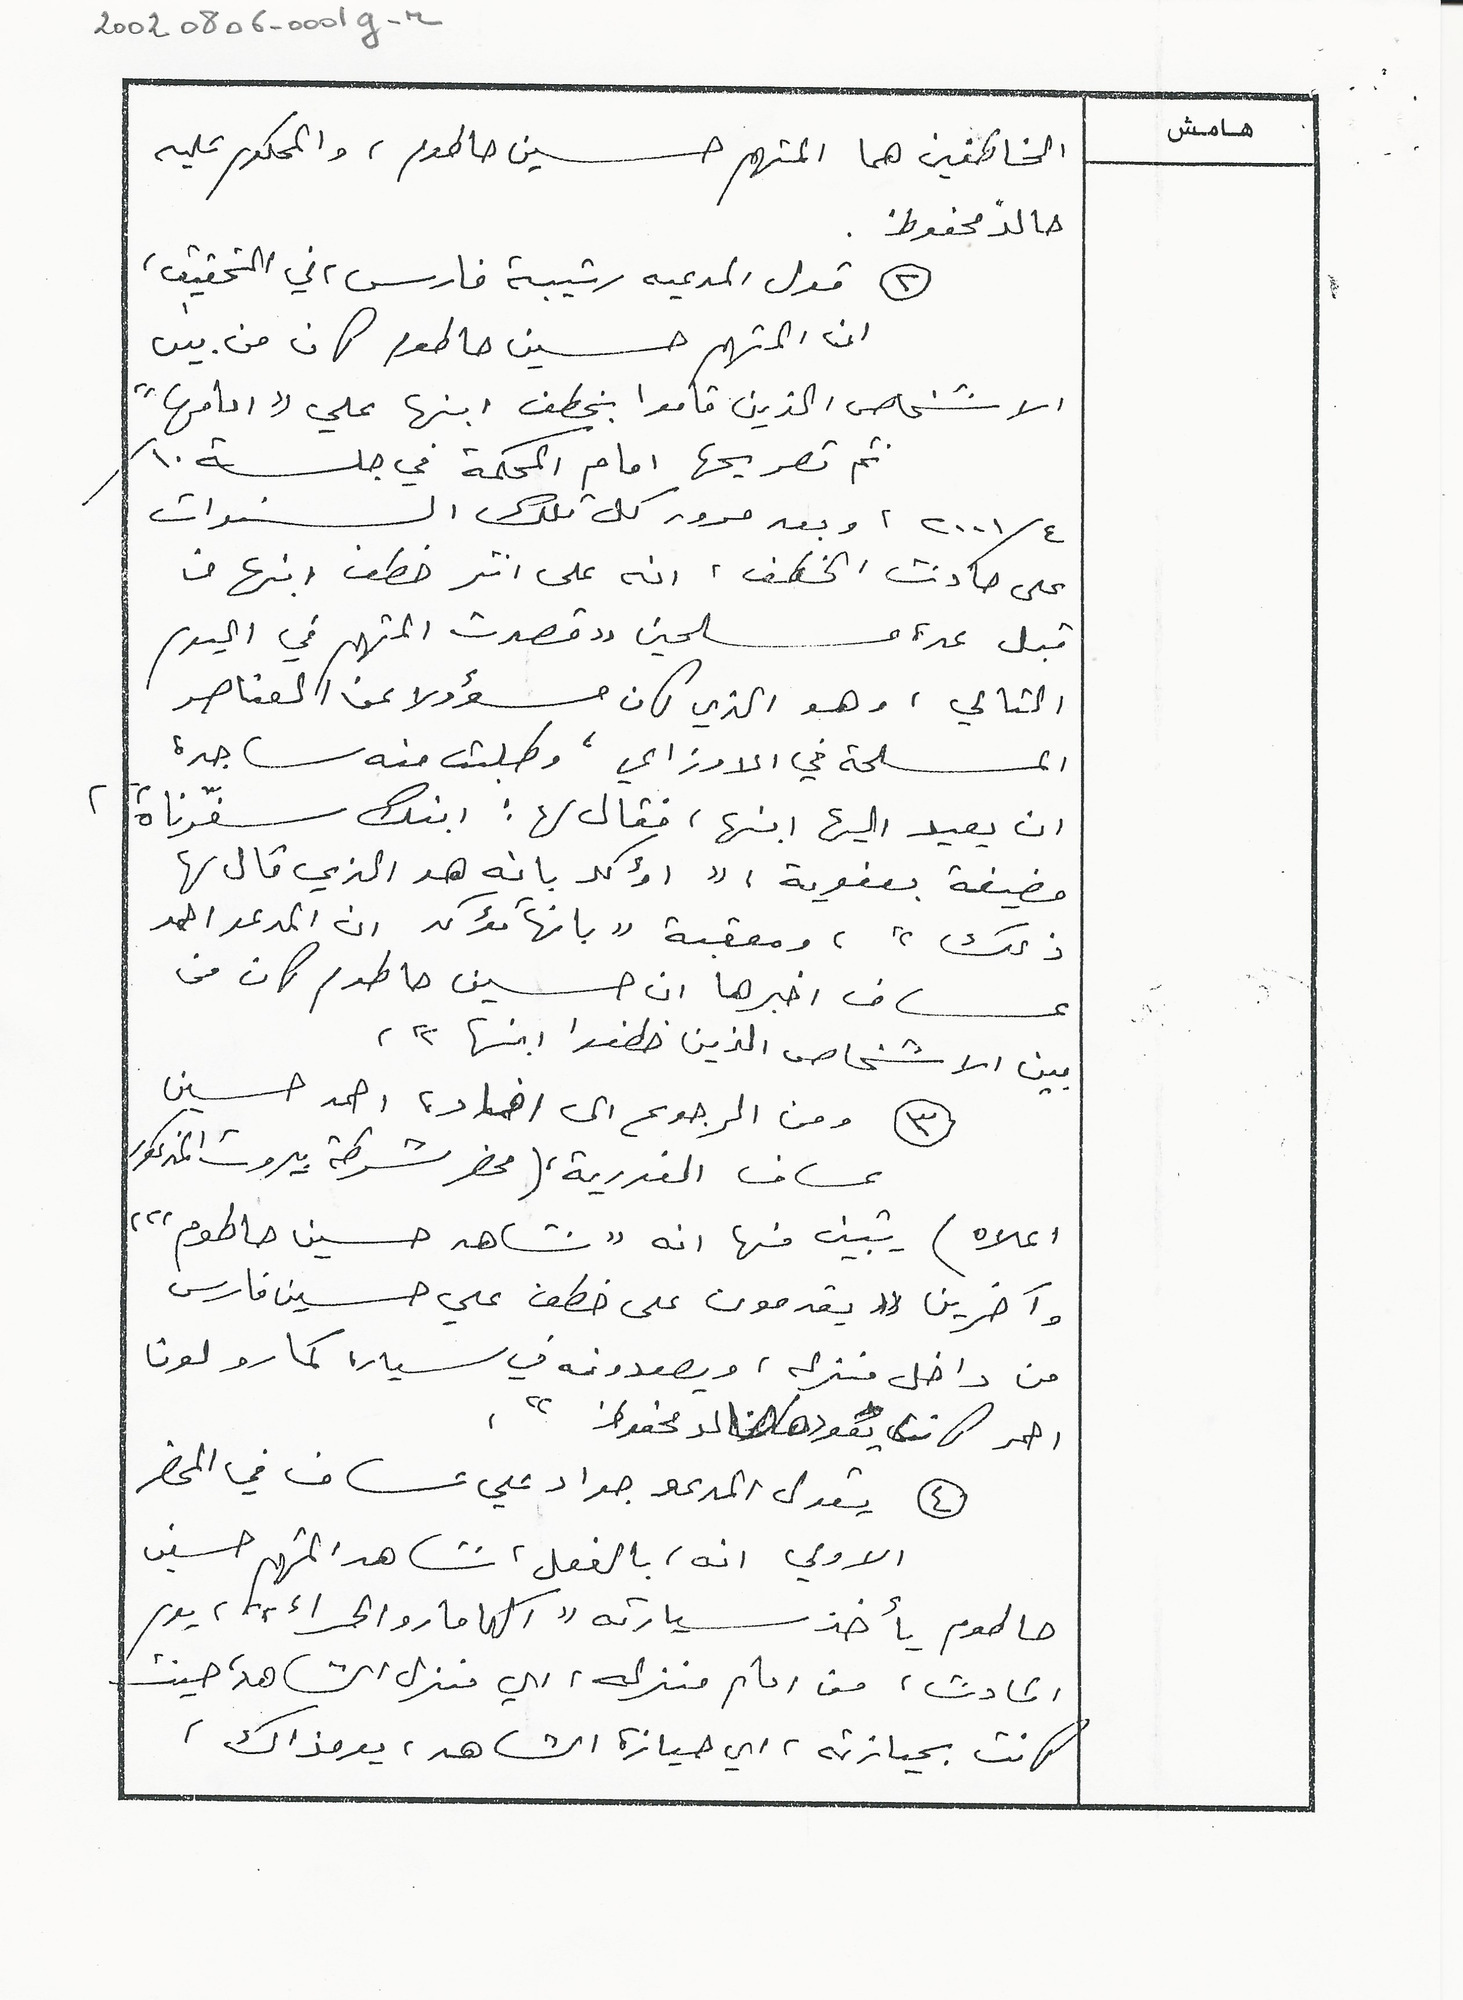 2002 0806-0001g-r
هامش
الخاطفين هما المتهم حسين حاطوم، والمحكوم عليه
خالد محفوظ.
② قول المدعيه رتيبة فارس، في التحقيق،
ان المتهم حسين حاطوم كان من بين
الاشخاص الذين قاموا بخطف ابنها علي "امامها"
ثم تصريحها امام المحكمة في جلسة ١٠/
٤/٢٠٠١، وبعد مرور كل تلك السنوات
على حادث الخطف، انه على اثر خطف ابنها من
قبل عدة مسلحين "قصدت المتهم في اليوم
التالي، وهو الذي كان مسؤولا عن العناصر
المسلحة في الاوزاعي، وطلبت منه ساجدة
ان يعيد اليها ابنها، فقال لها: ابنك سفّرناه"،
مضيفة بعفوية، "اؤكد بانه هو الذي قال لها
ذلك"، ومعقبة "بانها تؤكد ان المدعو احمد
عساف اخبرها ان حسين حاطوم كان من
بين الاشخاص الذين خطفوا ابنها"،
③ ومن الرجوع الى افادة احمد حسين
عساف الفورية، (محضر شرطة بيروت المذكور
اعلاه) يتبين منها انه "شاهد حسين حاطوم"،
وآخرين "يقدمون على خطف علي حسين فارس
من داخل منزله، ويصعدونه في سيارة كمارو لونا
احمر كانت يقودها خالد محفوظ"،
④ يقول المدعو جواد علي عساف في المحضر
الاولي انه، بالفعل، شاهد المتهم حسين
حاطوم يأخذ سيارته "الكامارو الحمراء"، يوم
الحادث، من امام منزله، اي منزل الشاهد، حيث
كانت بحيازته، اي حيازة الشاهد، يومذاك،